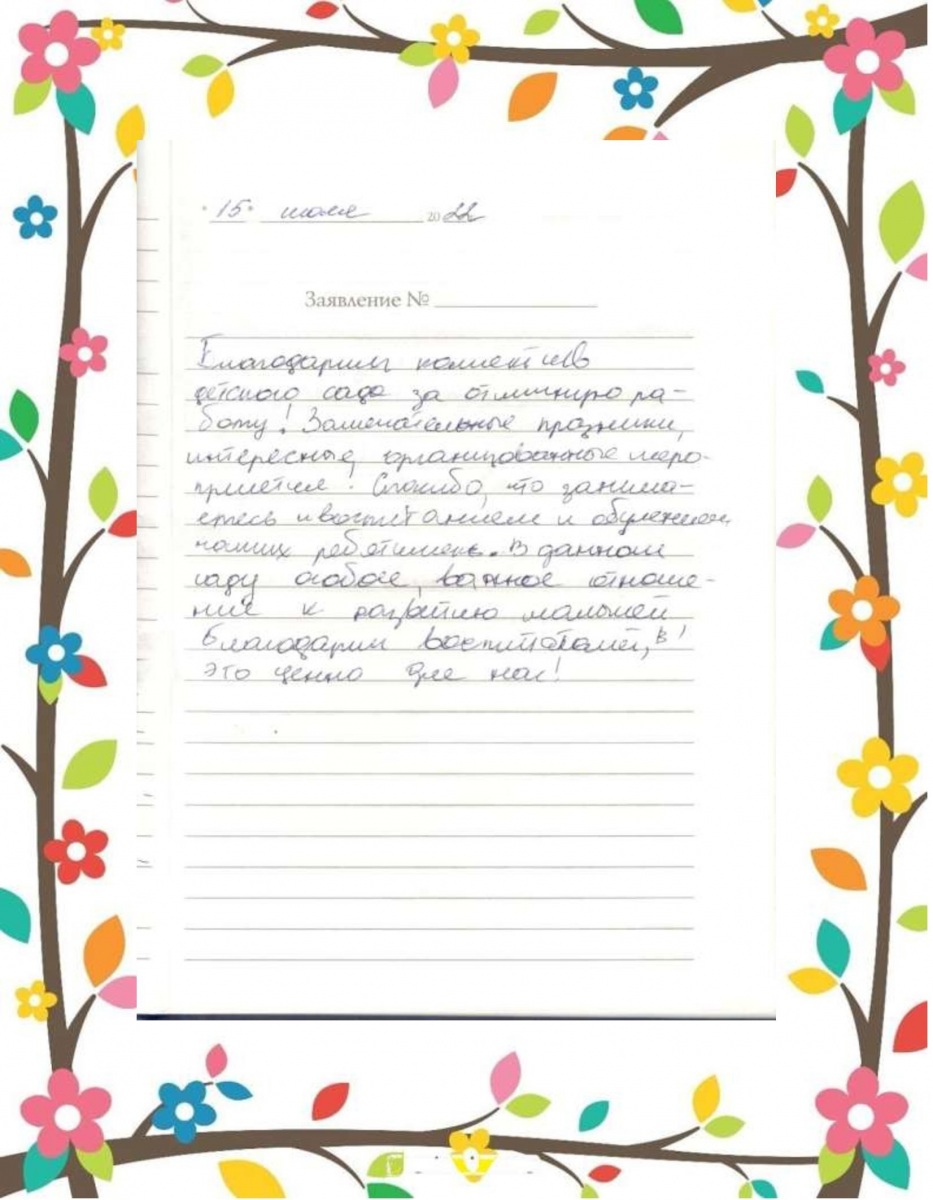 "15" июля 2022
Заявление №
Благодарим коллектив
детского сада за отличную ра-
боту! Замечательные праздники,
интересные, организованные меро-
приятия! Спасибо, что занима-
етесь и воспитанием и обучением
наших ребятишек. В данном
саду особое, важное отноше-
ние к развитию малышей
Благодарим воспитателей,
это ценно для нас!